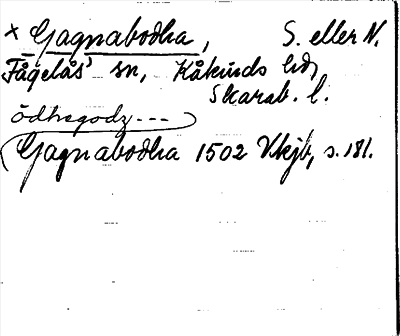 × Gagnabodha, S. eller N.
Fågelås sn, Kåkinds hd,
Skarab. l.
ödhegodz ---
Gagnabodha 1502 Vkjb, s. 181.